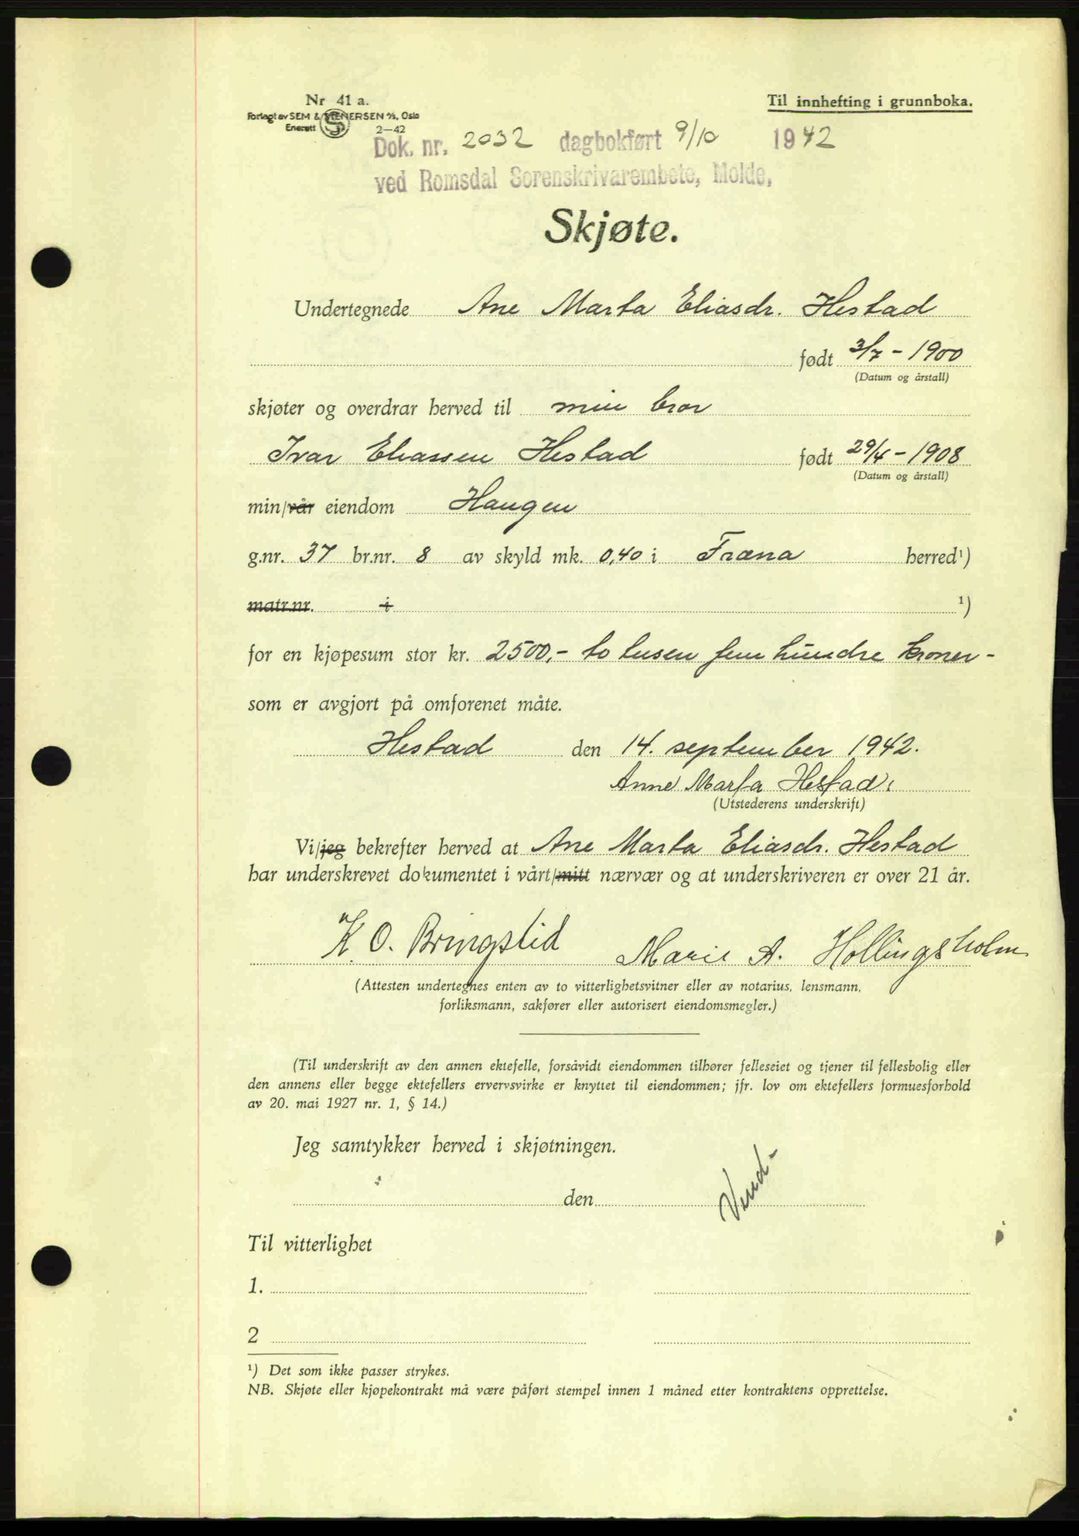 Nr 41 a.
Til innhefting i grunnboka.
Forlagt av SEM & STENERSEN A/S, Oslo
Enerett 2—42
Dok. nr. 2032 dagbokført 9/10 1942
ved Romsdal Sorenskrivarembete, Molde,
Skjøte.
Undertegnede Ane Marta Eliasdr. Hestad
født 3/7 - 1900
(Datum og årstall)
skjøter og overdrar herved til min bror
Ivar Eliassen Hestad født 29/4 - 1908
(Datum og årstall)
min/vår eiendom Haugen
g.nr. 37 br.nr. 8 av skyld mk. 0,40 i Fræna herred¹)
matr.nr. i ¹)
for en kjøpesum stor kr. 2500,- to tusen fem hundre kroner -
som er avgjort på omforenet måte.
Hestad den 14. september 1942.
Anne Marta Hestad.
(Utstederens underskrift)
Vi/jeg bekrefter herved at Ane Marta Eliasdr. Hestad
har underskrevet dokumentet i vårt/mitt nærvær og at underskriveren er over 21 år.
K. O. Bringslid Marie A. Hollingsholm
(Attesten undertegnes enten av to vitterlighetsvitner eller av notarius, lensmann,
forliksmann, sakfører eller autorisert eiendomsmegler.)
(Til underskrift av den annen ektefelle, forsåvidt eiendommen tilhører felleseiet og tjener til fellesbolig eller
den annens eller begge ektefellers ervervsvirke er knyttet til eiendommen; jfr. lov om ektefellers formuesforhold
av 20. mai 1927 nr. 1, § 14.)
Jeg samtykker herved i skjøtningen.
den
Vend-
Til vitterlighet
1.
2
¹) Det som ikke passer strykes.
NB. Skjøte eller kjøpekontrakt må være påført stempel innen 1 måned etter kontraktens opprettelse.